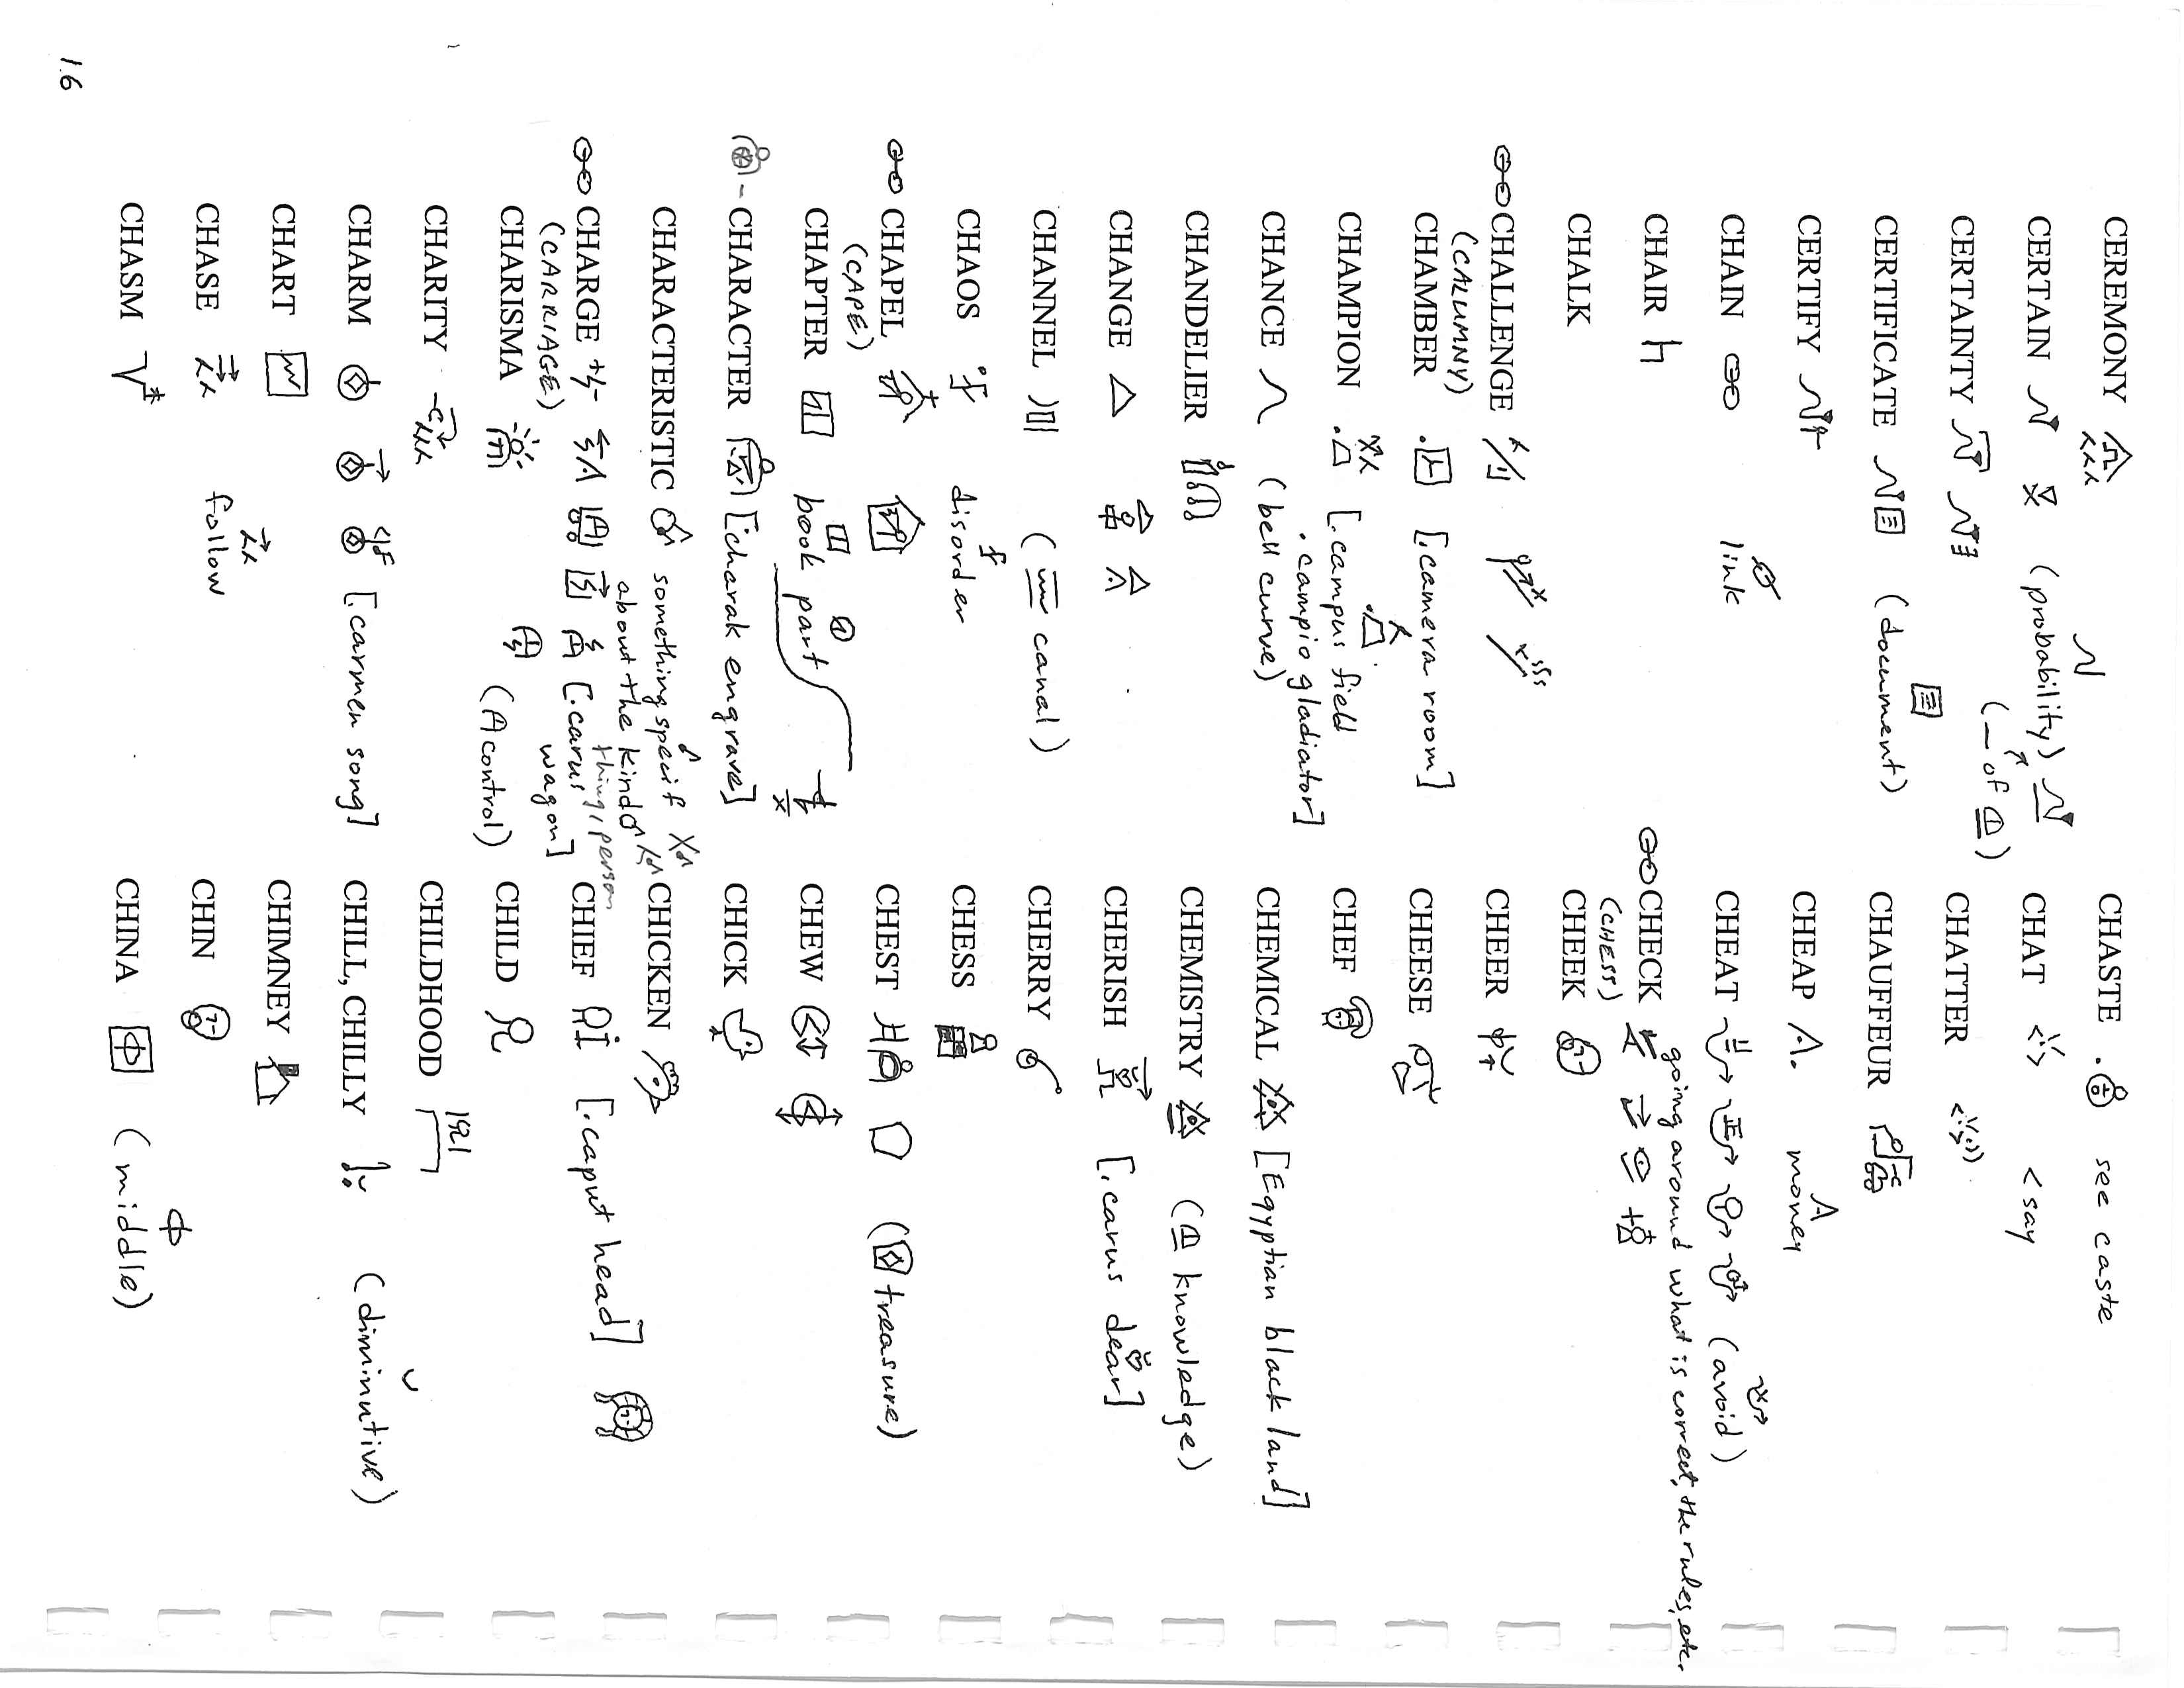 CEREMONY
CERTAIN (probability)
CERTAINTY (— of )
CERTIFICATE (document)
CERTIFY
CHAIN link
CHAIR
CHALK
CHALLENGE
(CALUMNY)
CHAMBER [.camera room]
CHAMPION [.campus field
.campio gladiator]
CHANCE (bell curve)
CHANDELIER
CHANGE
CHANNEL ( canal)
CHAOS disorder
CHAPEL
(CAPE)
CHAPTER book part
CHARACTER [:charak engrave]
CHARACTERISTIC something specif
about the kind of
thing/person
CHARGE +/- [.carus wagon]
(CARRIAGE)
CHARISMA (A control)
CHARITY
CHARM [.carmen song]
CHART
CHASE follow
CHASM
16
CHASTE . see caste
CHAT < say
CHATTER
CHAUFFEUR
CHEAP money
CHEAT (avoid)
going around what is correct, the rules, etc.
CHECK
(CHESS)
CHEEK
CHEER
CHEESE
CHEF
CHEMICAL [Egyptian black land]
CHEMISTRY ( knowledge)
CHERISH [.carus dear]
CHERRY
CHESS
CHEST ( treasure)
CHEW
CHICK
CHICKEN
CHIEF [.caput head]
CHILD
CHILDHOOD
CHILL, CHILLY (diminutive)
CHIMNEY
CHIN
CHINA (middle)